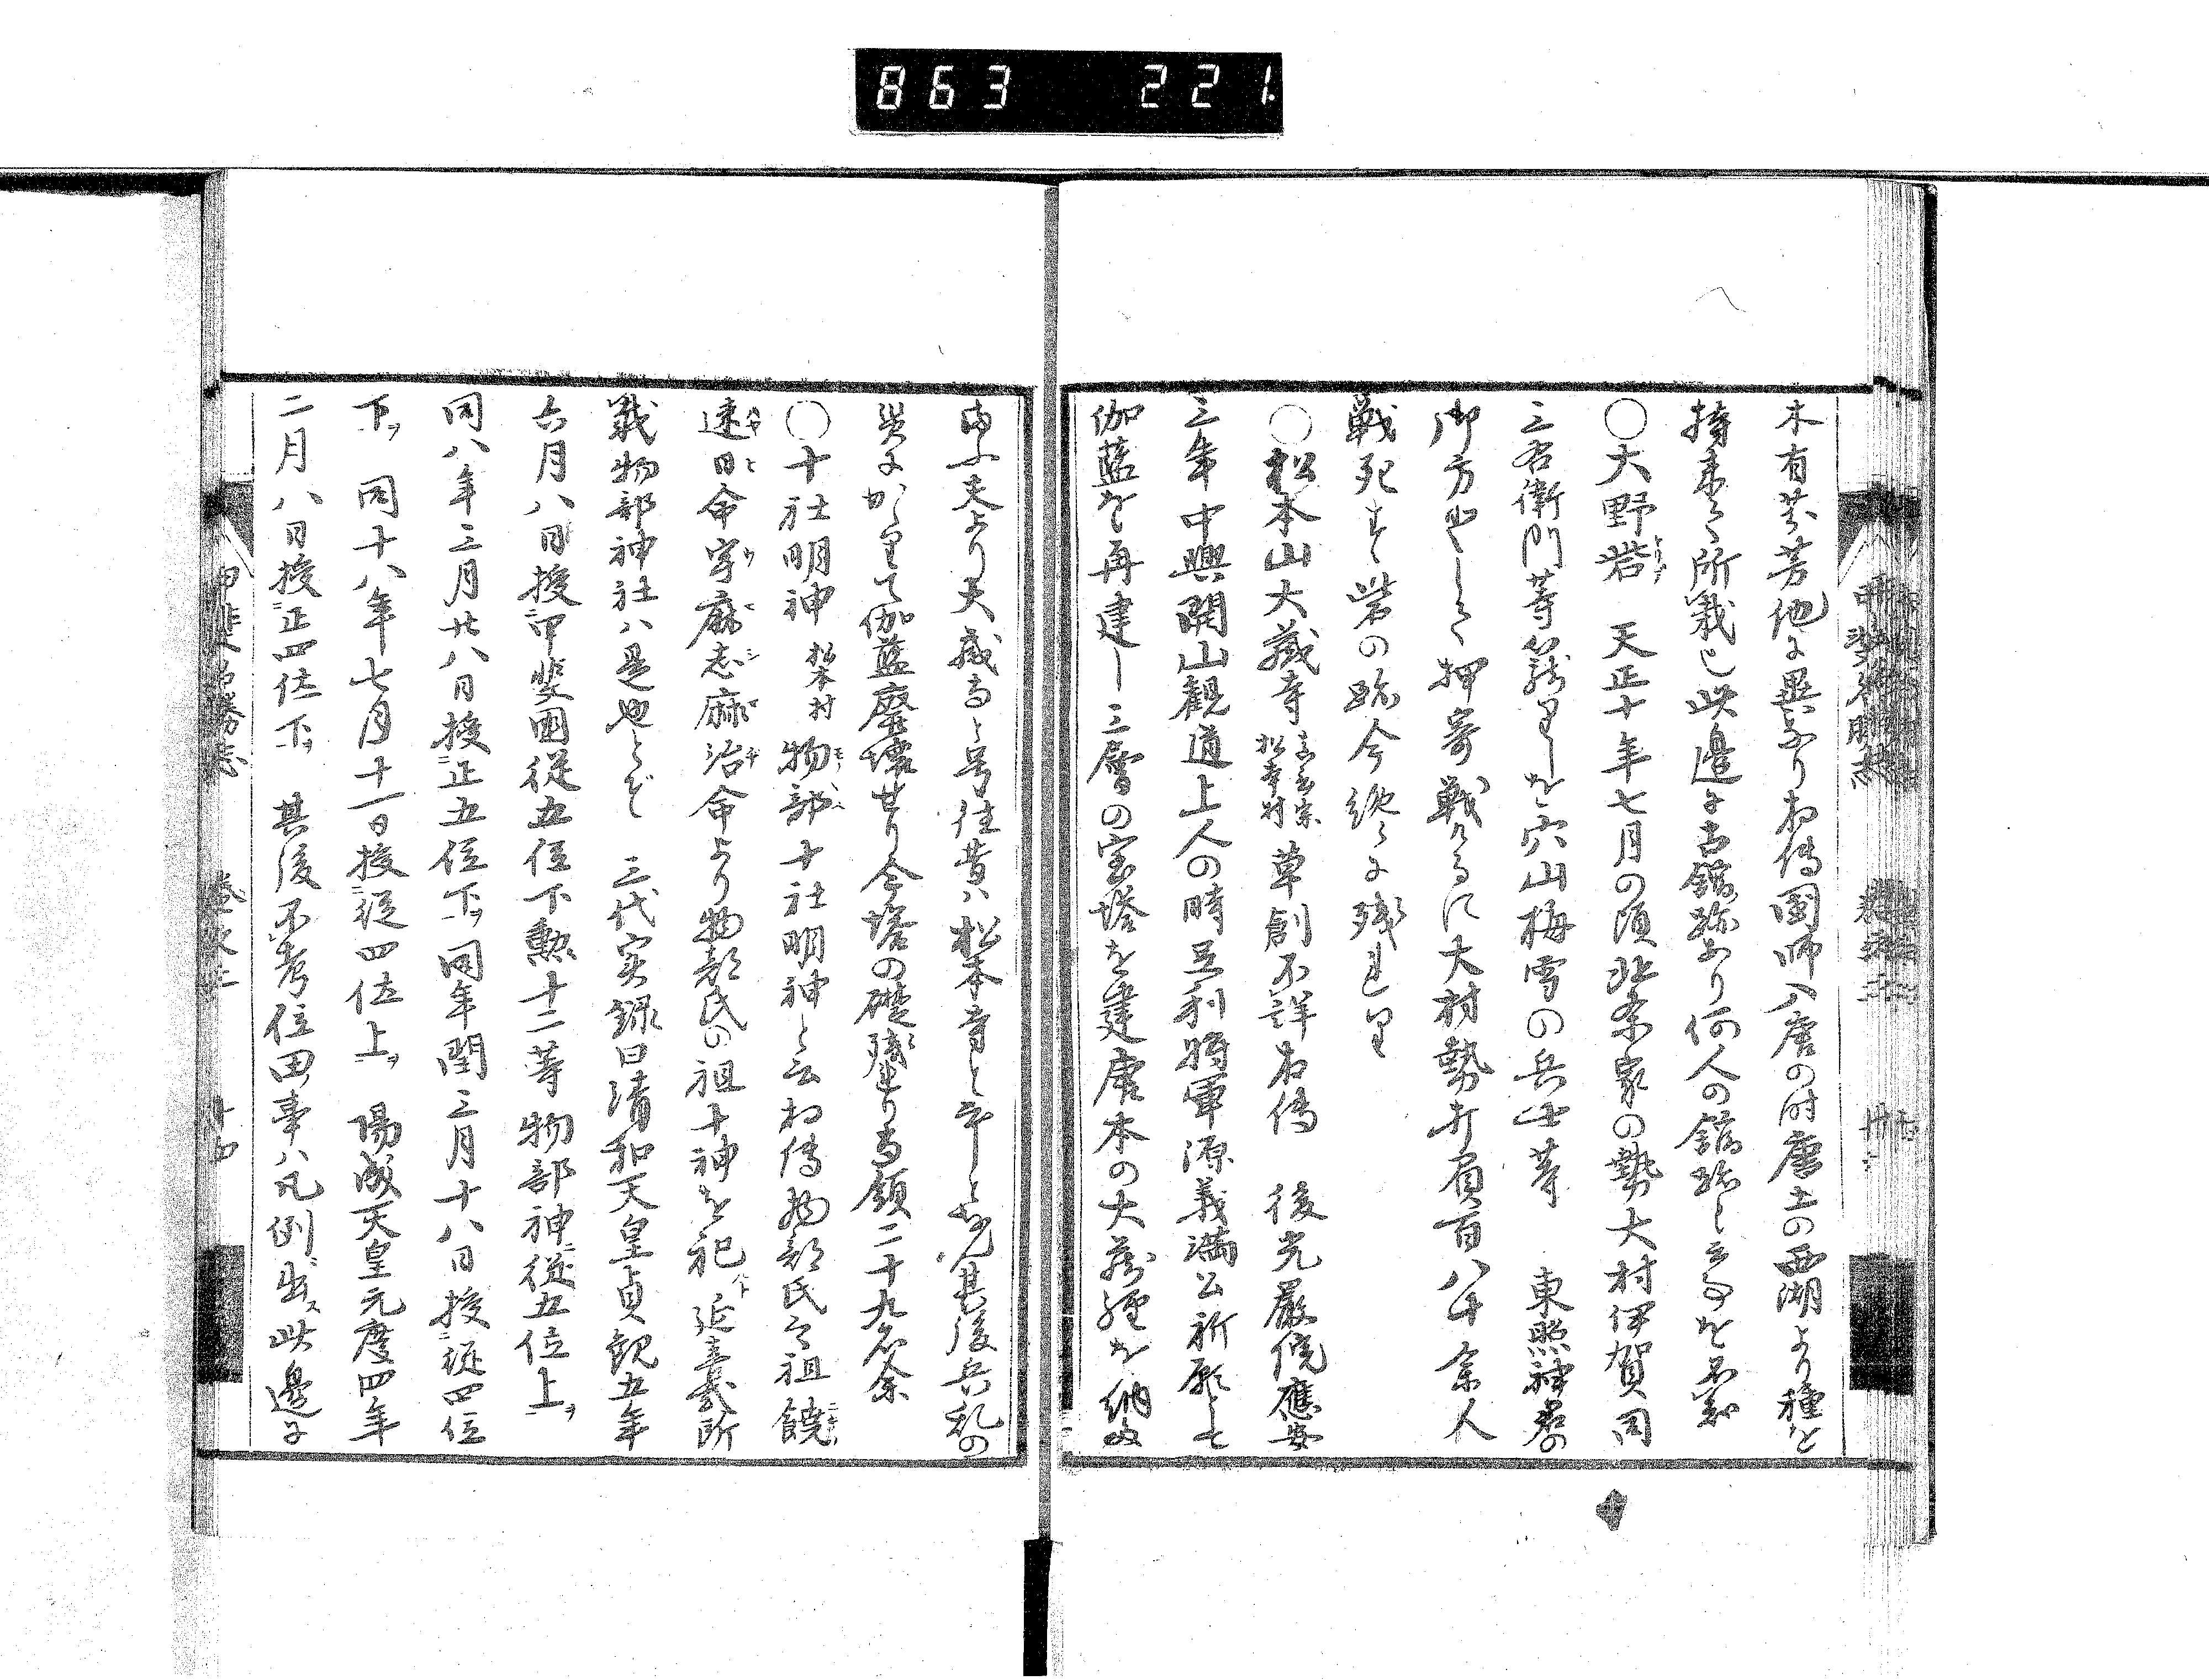 863 221
木有芬芳他に異なり相傳國師入唐の時唐土の西湖より種を
持来て所栽也此邊に古館跡あり何人の館跡と云事を不知
○大野砦 天正十年七月の頃北条家の勢大村伊賀同
三右衛門等籠りしを穴山梅雪の兵士等 東照神君の
御方として押寄戦けるに大村勢打負百八十余人
戦死す砦の跡今纔に残れり
○松本山大蔵寺 真言宗松本村 草創不詳相傳 後光嚴院應安
三年中興開山観道上人の時足利将軍源義満公祈願して
伽藍を再建し三層の宝塔を建唐本の大蔵経を納め
玉ふ夫より大蔵寺と号往昔ハ松本寺と云しと其後兵乱の
災にかゝりて伽藍廢壊せり今塔の礎残れり寺領二十九石余
○十社明神 松本村 物部十社明神と云相傳物部氏之祖饒
速日命宇麻志麻治命より物部氏の祖十神を祀ル 延喜式所
載物部神社ハ是也とぞ 三代実録曰清和天皇貞観五年
六月八日授甲斐國従五位下勲十二等物部神従五位上ヲ
同八年三月廿八日授正五位下ヲ同年閏三月十八日授従四位
下ヲ 同十八年七月十一日授従四位上ヲ 陽成天皇元慶四年
二月八日授正四位下ヲ 其後不考位田ノ事ハ凡例ニ出ス此邊に
甲斐名勝志